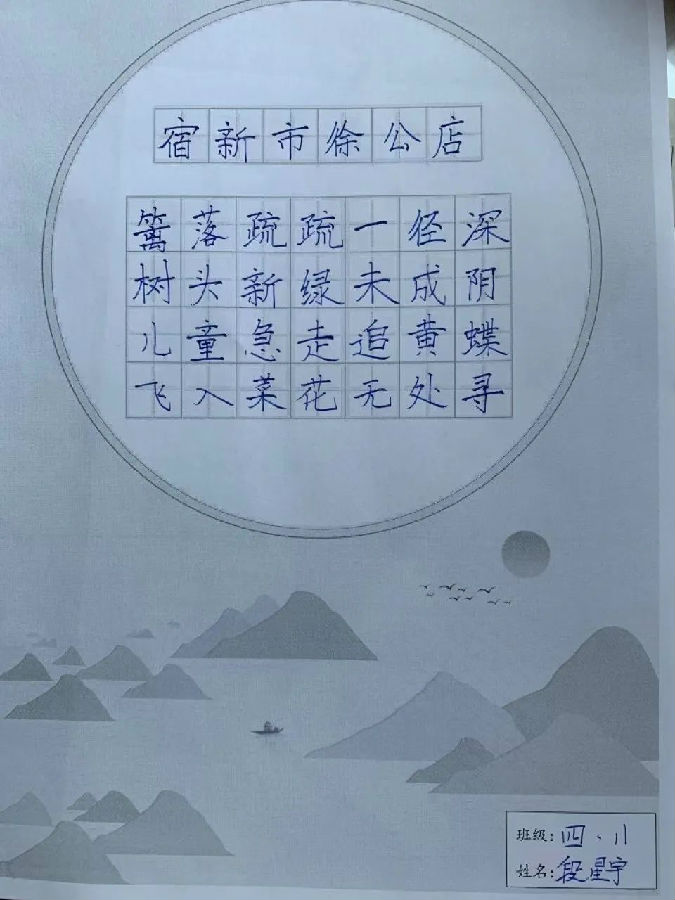 宿新市徐公店
篱落疏疏一径深
树头新绿未成阴
儿童急走追黄蝶
飞入菜花无处寻
班级:四、11
姓名:段星宇